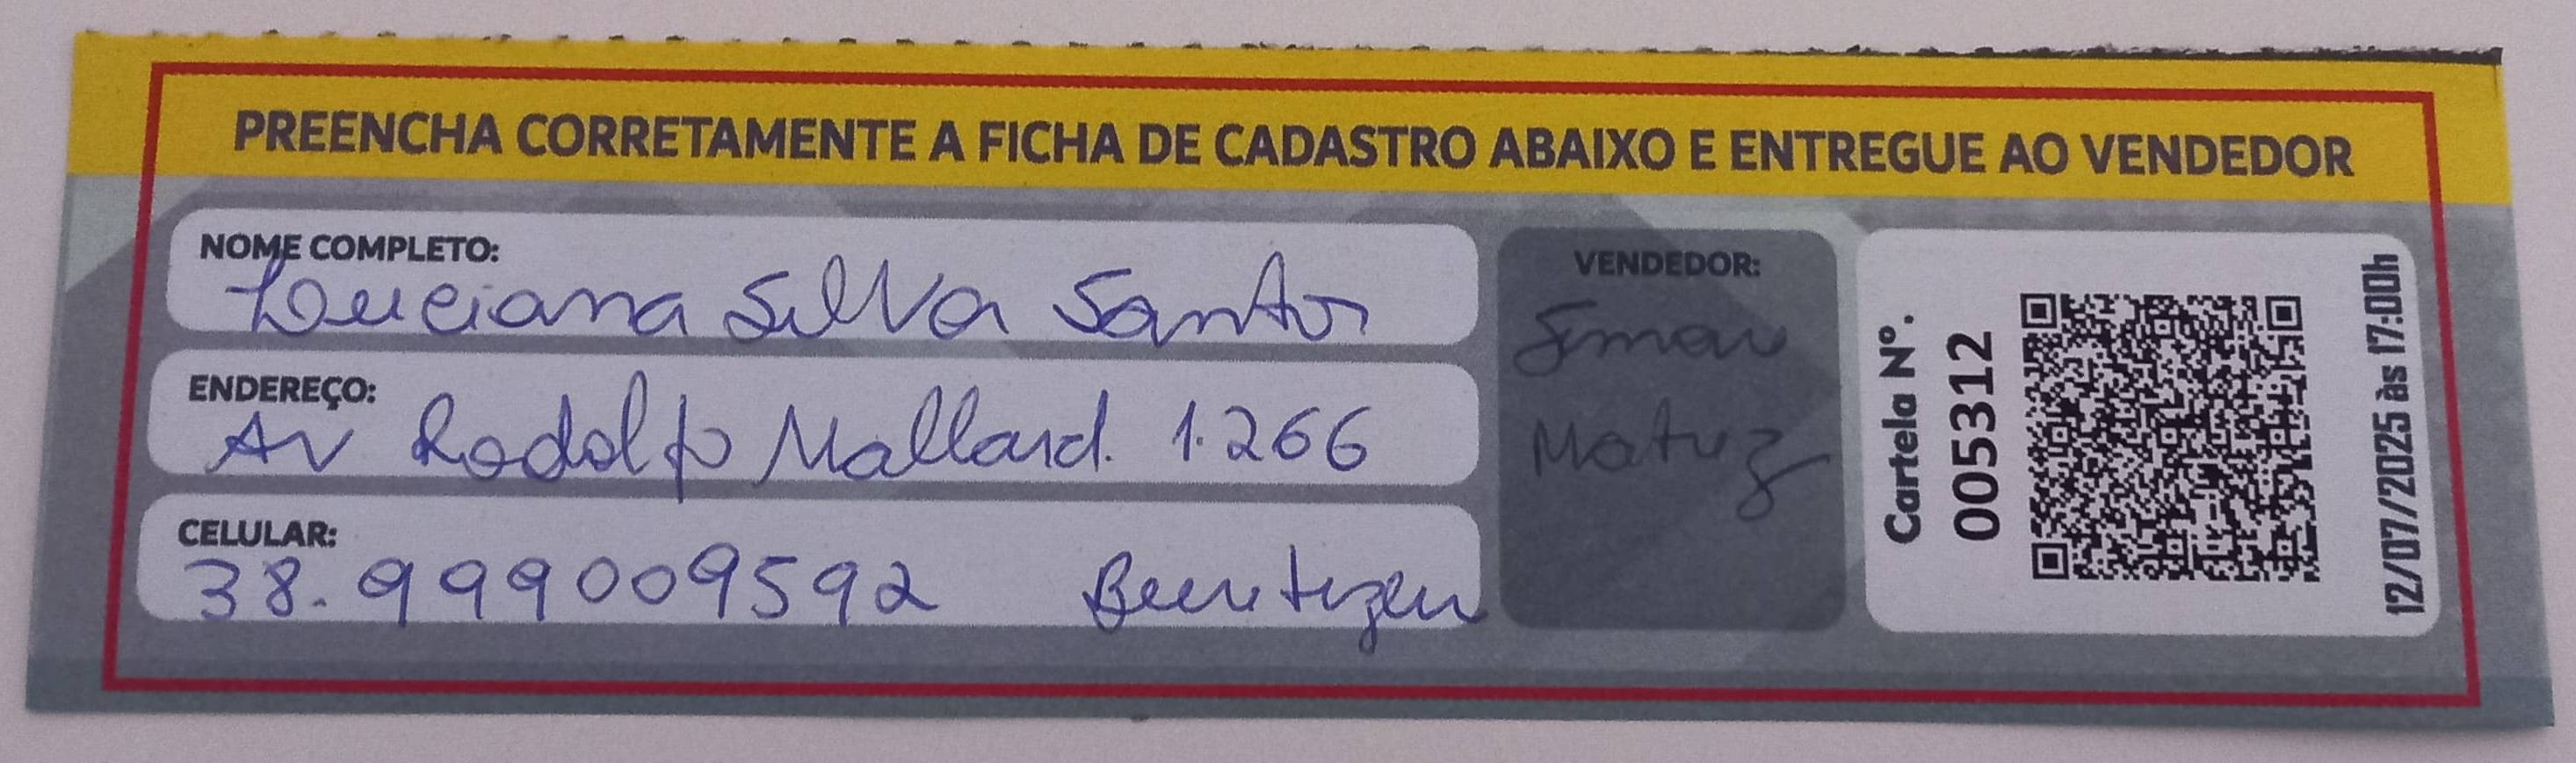 PREENCHA CORRETAMENTE A FICHA DE CADASTRO ABAIXO E ENTREGUE AO VENDEDOR
NOME COMPLETO:
Luciana Silva Santos
ENDEREÇO:
Av Rodolfo Mallard. 1.266
CELULAR:
38. 999009592
VENDEDOR:
Matriz
Cartela Nº.
005312
12/07/2025 às 17:00h